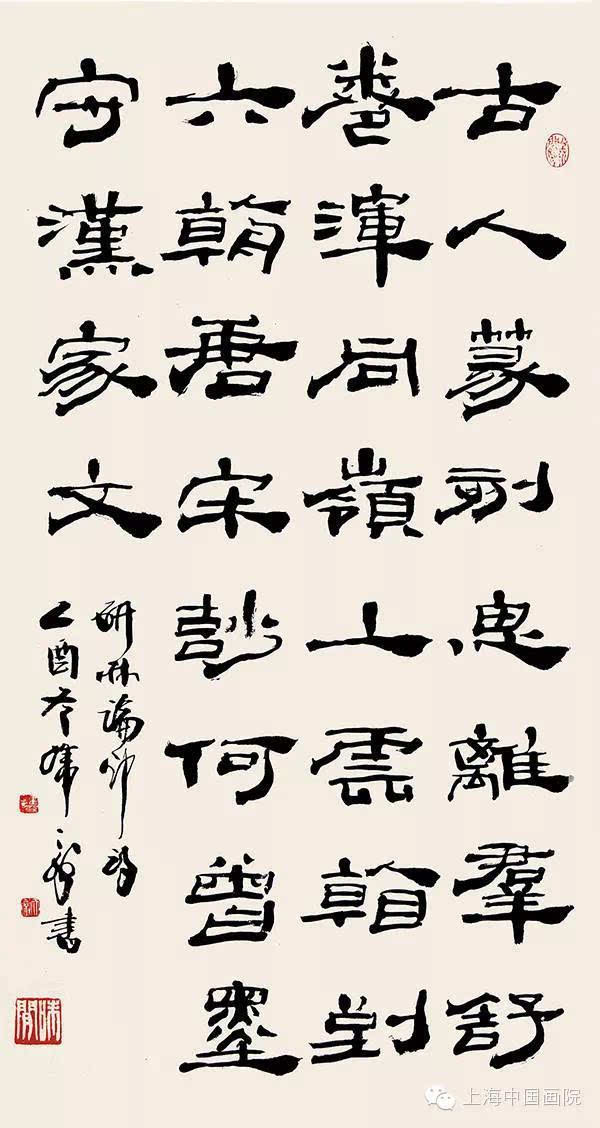 古人篆刻思離羣舒
卷渾同嶺上雲看到
六朝唐宋妙何曾墨
守漢家文
研林論印詩
乙酉書
味閒
上海中国画院